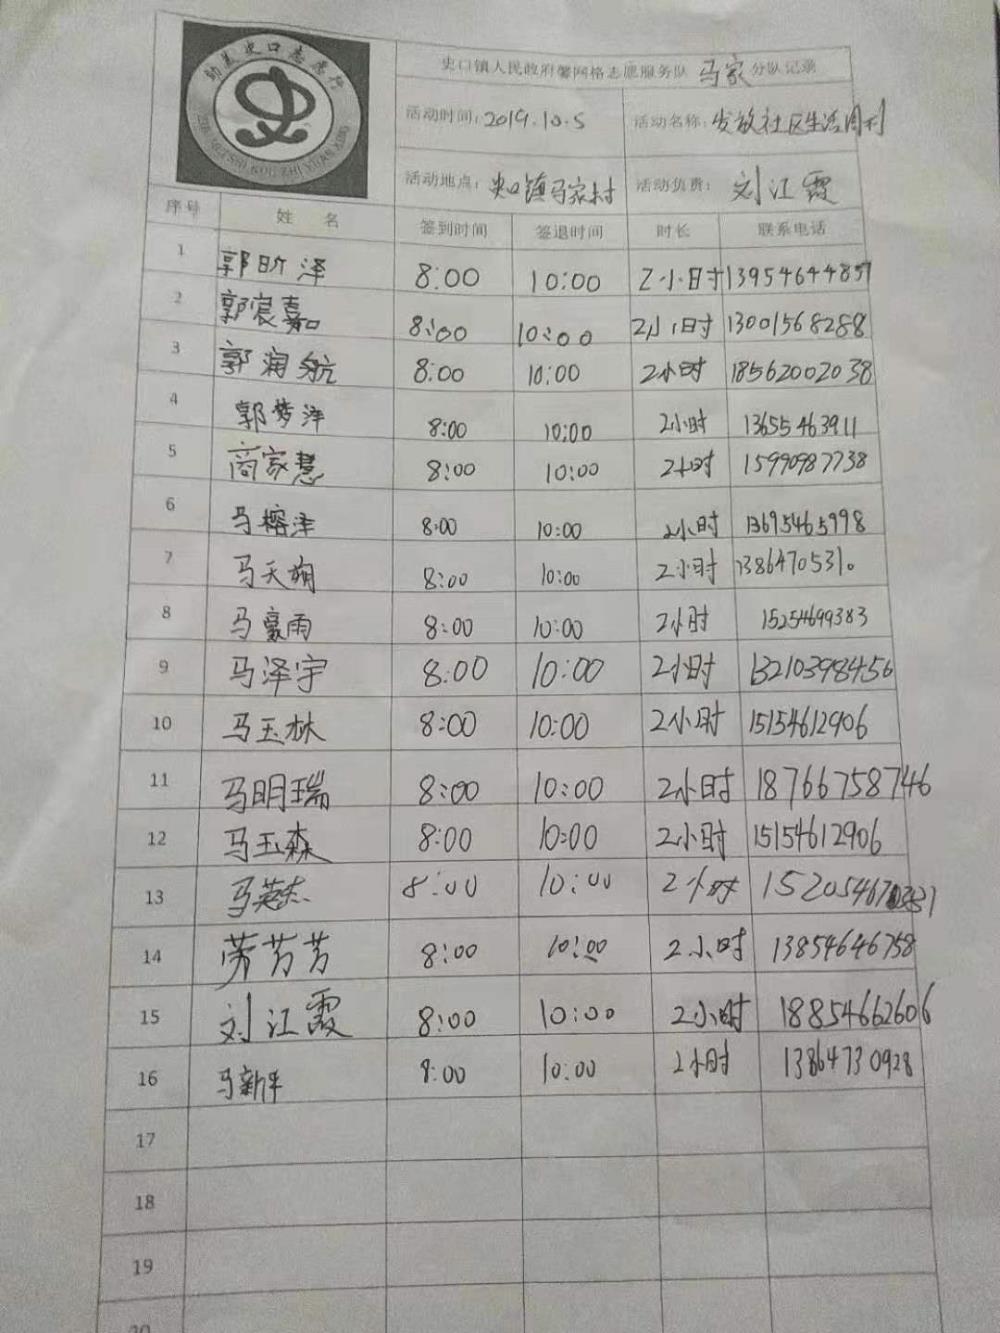 史口镇人民政府馨网格志愿服务队 马家 分队记录
活动时间：2019.10.5 活动名称：发放社区生活周刊
活动地点：史口镇马家村 活动负责：刘江霞
序号 姓名 签到时间 签退时间 时长 联系电话
1 郭昕泽 8:00 10:00 2小时 13954644857
2 郭宸嘉 8:00 10:00 2小时 13001568288
3 郭润航 8:00 10:00 2小时 18562002038
4 郭梦泽 8:00 10:00 2小时 13655463911
5 商家慧 8:00 10:00 2小时 15990987738
6 马榕泽 8:00 10:00 2小时 13695465998
7 马天翔 8:00 10:00 2小时 13864705310
8 马豪雨 8:00 10:00 2小时 15254699383
9 马泽宇 8:00 10:00 2小时 13210398456
10 马玉林 8:00 10:00 2小时 15154612906
11 马明瑞 8:00 10:00 2小时 18766758746
12 马玉森 8:00 10:00 2小时 15154612906
13 马英杰 8:00 10:00 2小时
14 劳芳芳 8:00 10:00 2小时 13854646758
15 刘江霞 8:00 10:00 2小时 18854662606
16 马新平 8:00 10:00 2小时 13864730928
17
18
19
20